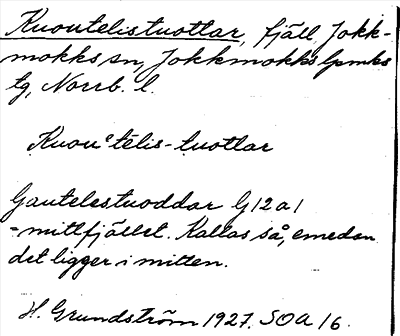 Kuoutelistuottar, fjäll, Jokk-
mokks sn, Jokkmokks lpmks
tg, Norrb. l.
Kuou͑tēlis-tuottar
Gautelestuoddar G12a1
=mittfjället. Kallas så, emedan
det ligger i mitten.
H. Grundström 1927. SOA 16.